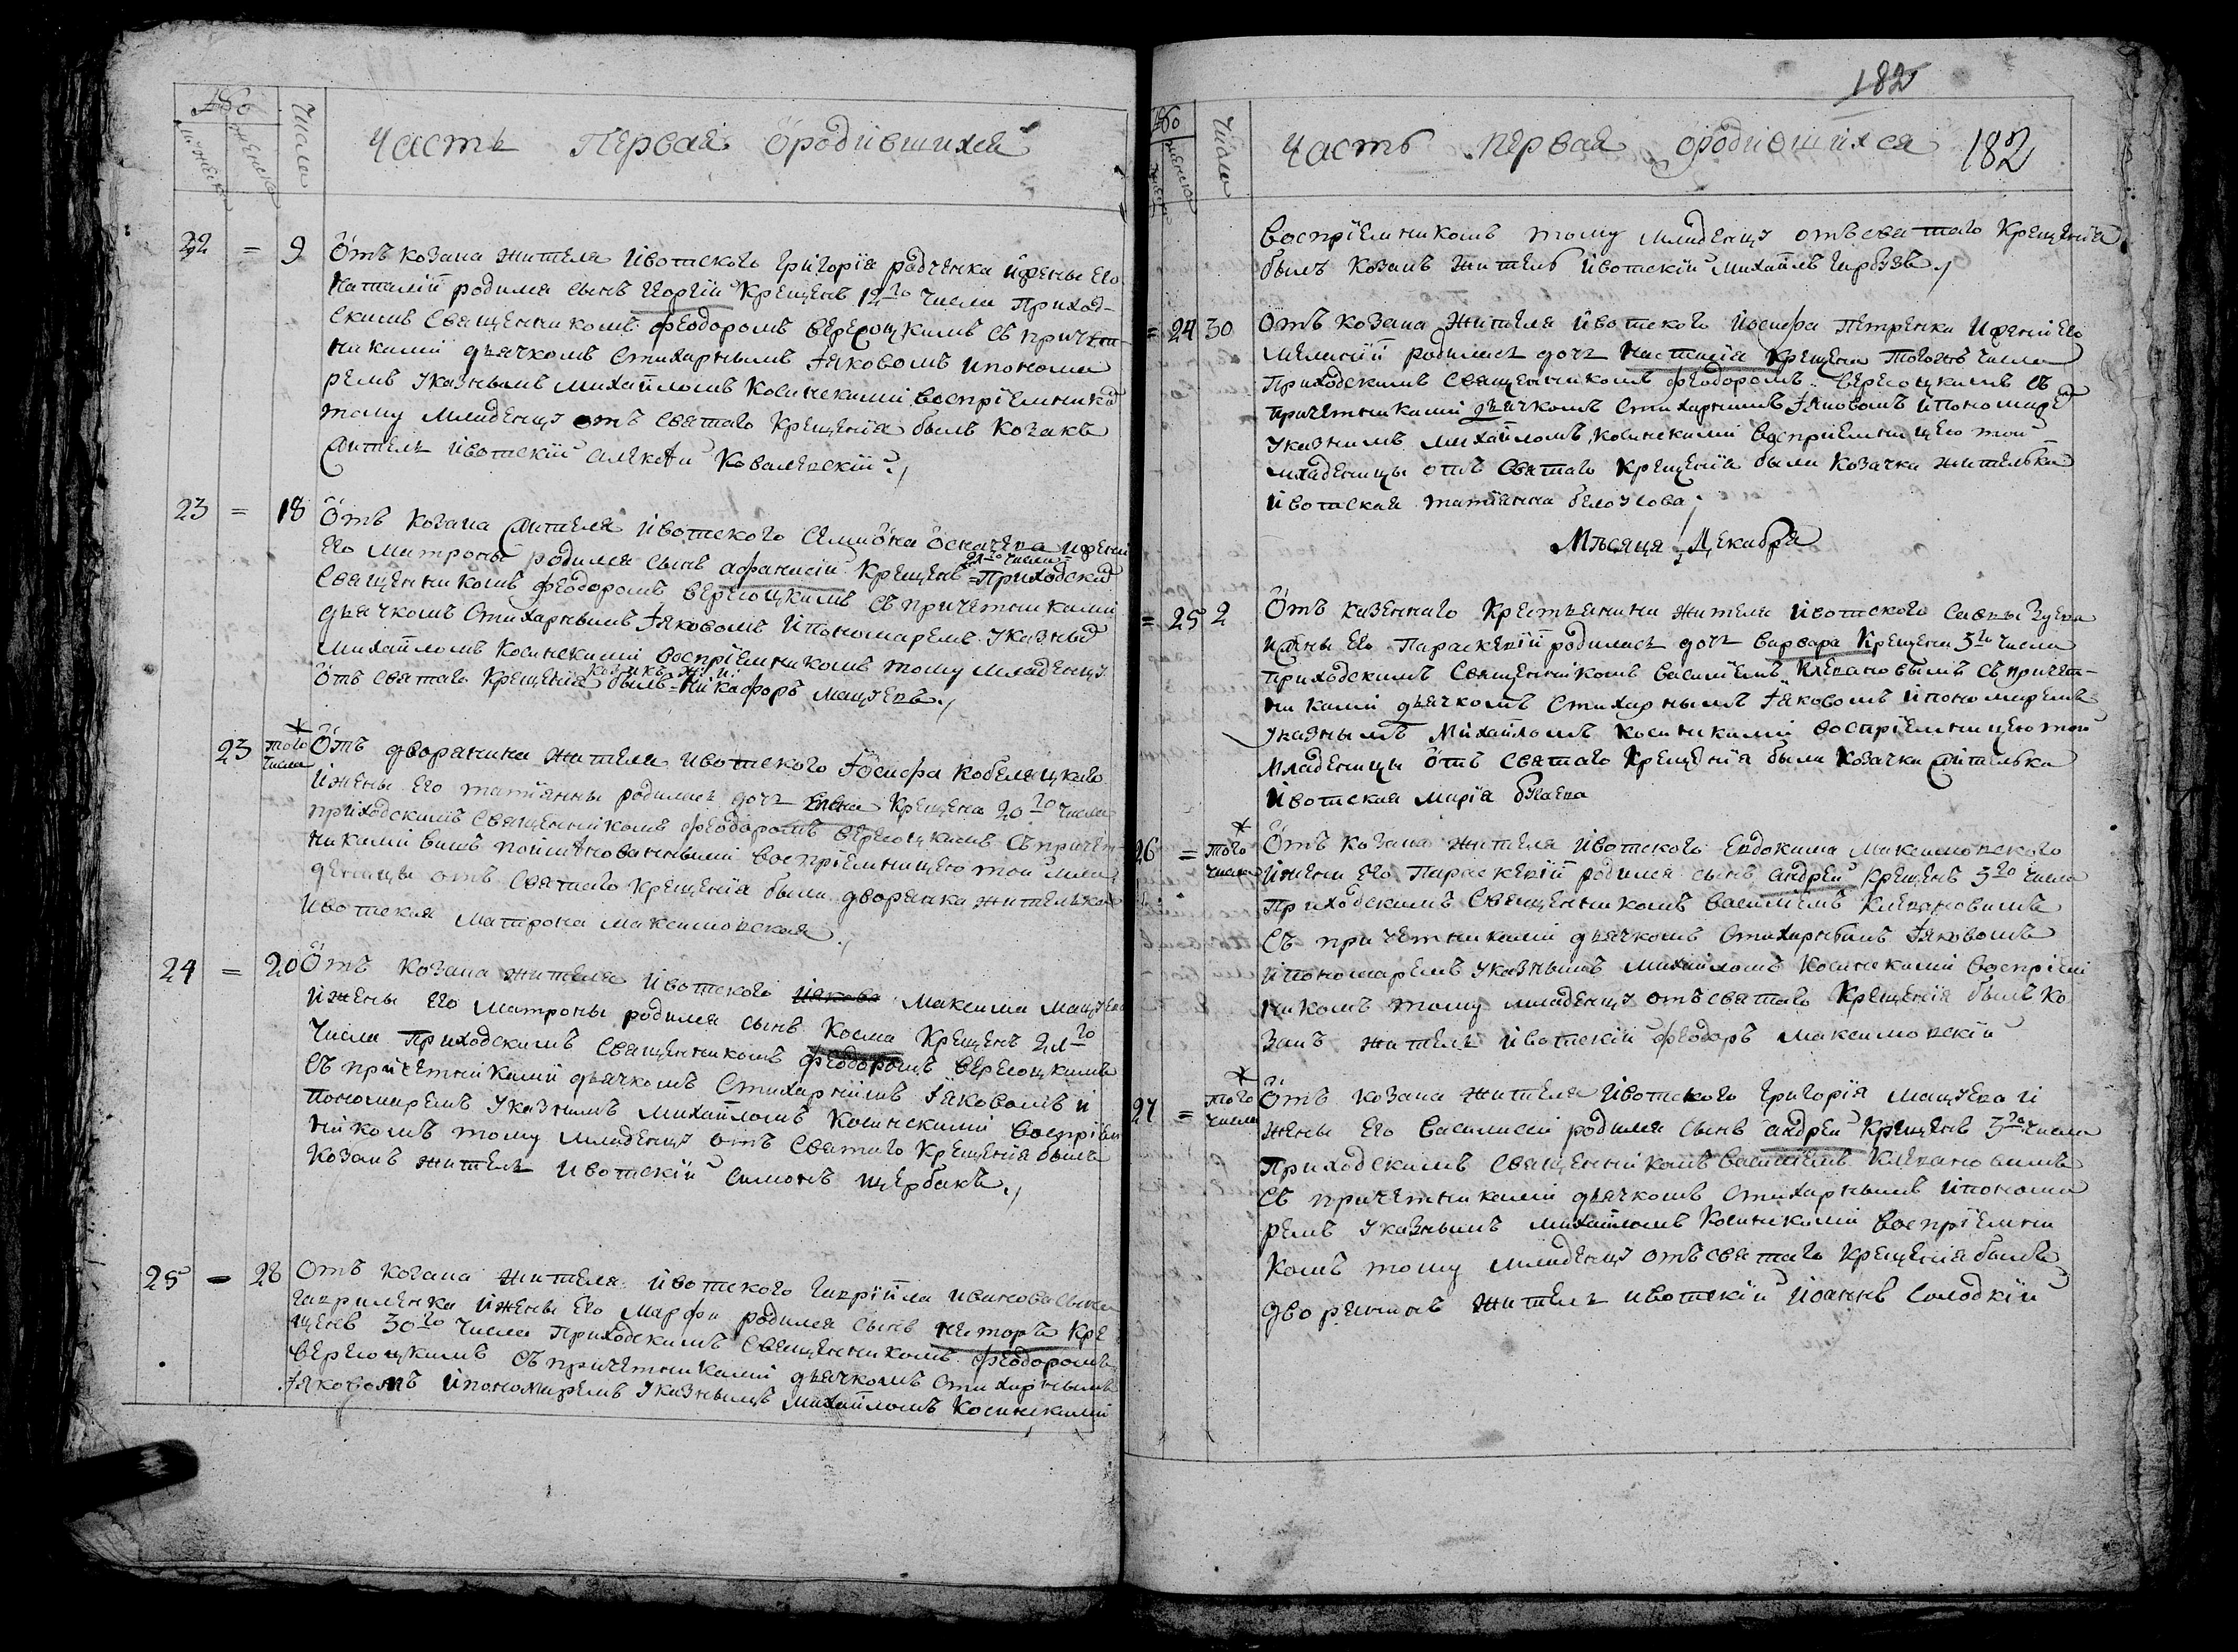 Числа
Часть Первая ородившихся
22 = 9 Отъ козака жителя ивотского Григорія радченка ижены Его
Наталіи родился сынъ Георгій Крещенъ 12го числа Приход-
скимъ Священникомъ феодоромъ верегоцкимъ съ причет-
никами дьячкомъ Стихарнымъ Іяковомъ ипонома
ремъ Указнымъ михайломъ Косинскими воспріемнико
тому младенцу отъ святаго Крещенія былъ Козакъ
житель ивотскій алексѣи Ковалевскій
23 = 18 Отъ козака жителя ивотского Семиона Осначева ижени
Его матроны родился сынъ афанасій Крещенъ 21го числа Приходски
Священникомъ феодоромъ верегоцкимъ съ причетниками
дьячкомъ Стихарнымъ Іяковомъ ипономаремъ Указны
михайломъ Косинскими воспріемникомъ тому младенцу
отъ святаго Крещенія былъ козакъ жи: и: Никифоръ мацуевъ
23 того числа Отъ дворянина жителя ивотского Іосифа кобеляцкого
ижены Его татіанны родилась дочь Елена Крещена 20го числа
приходскимъ священникомъ феодоромъ верегоцкимъ съ причет-
никами вишъ поимѣнованными воспріемницею той мла
деницы отъ Святаго Крещенія была дворянка жителька
ивотская матрона максимовская
24 = 20 Отъ козака жителя ивотского Іякова максима мацуева
ижены Его матроны родился сынъ Косма Крещенъ 21го
числа Приходскимъ Священникомъ феодоромъ верегоцкимъ
съ причетниками дьячкомъ Стихарнимъ Іяковомъ и
пономаремъ Указнимъ михайломъ Косинскими воспріем
никомъ тому младенцу отъ Святаго Крещенія былъ
козакъ житель ивотскій симонъ щербакъ
25 - 28 Отъ козака жителя ивотского Гавріила иванова сына
Гавриленка ижены Его марфи родился сынъ несторъ Кре
щенъ 30го числа Приходскимъ Священникомъ феодоромъ
верегоцкимъ съ причетниками дьячкомъ Стихарнымъ
Іяковомъ ипономаремъ Указнымъ михайломъ Косинскими
182
Числа
Часть первая ородившихся 182
воспріемникомъ тому младенцу отъ святаго Крещенія
былъ козакъ житель ивотскій михаилъ гарбузъ
= 24 30 Отъ козака жителя ивотского Иосифа Петренка ижени Его
меланіи родилась дочь настасія Крещена тогожъ числа
Приходскимъ Священникомъ феодоромъ верегоцкимъ съ
причетниками дьячкомъ Стихарнимъ Іяковомъ ипономаре
Указнимъ михайломъ Косинскими воспріемницею той
младеницы отъ Святаго Крещенія была Козачка жителька
ивотская татіанна белоусова
Мѣсяца Декабря
= 25 2 Отъ казеннаго Крестьянина жителя ивотского савы Зуева
ижены Его Параскевіи родилась дочь варвара Крещена 3го числа
приходскимъ Священникомъ василіемъ Клевановымъ съ причет-
никами дьячкомъ Стихарнымъ Іяковомъ ипономаремъ
указнымъ михайломъ косинскими воспріемницею той
младеницы отъ Святаго Крещенія была козачка жителька
ивотская марія
26 = того числа Отъ козака жителя ивотского Евдокима максимовского
ижени Его Параскевіи родился сынъ андрей Крещенъ 3го числа
Приходскимъ Священникомъ василіемъ Клевановимъ
съ причетниками дьячкомъ Стихарнымъ Іяковомъ
ипономаремъ Указнымъ михайломъ Косинскими воспріем
никомъ тому младенцу отъ святаго Крещенія былъ ко
закъ житель ивотскій феодоръ максимовскій
27 = того числа Отъ козака жителя ивотского Григорія мацуева и
жены Его василисы родился сынъ андрей Крещенъ 3го числа
Приходскимъ священникомъ василіемъ Клевановимъ
съ причетниками дьячкомъ Стихарнымъ ипонома
ремъ Указнымъ михайломъ Косинскими воспріемни
комъ тому младенцу отъ святаго Крещенія былъ
дворянинъ житель ивотскій Иоаннъ солодкій